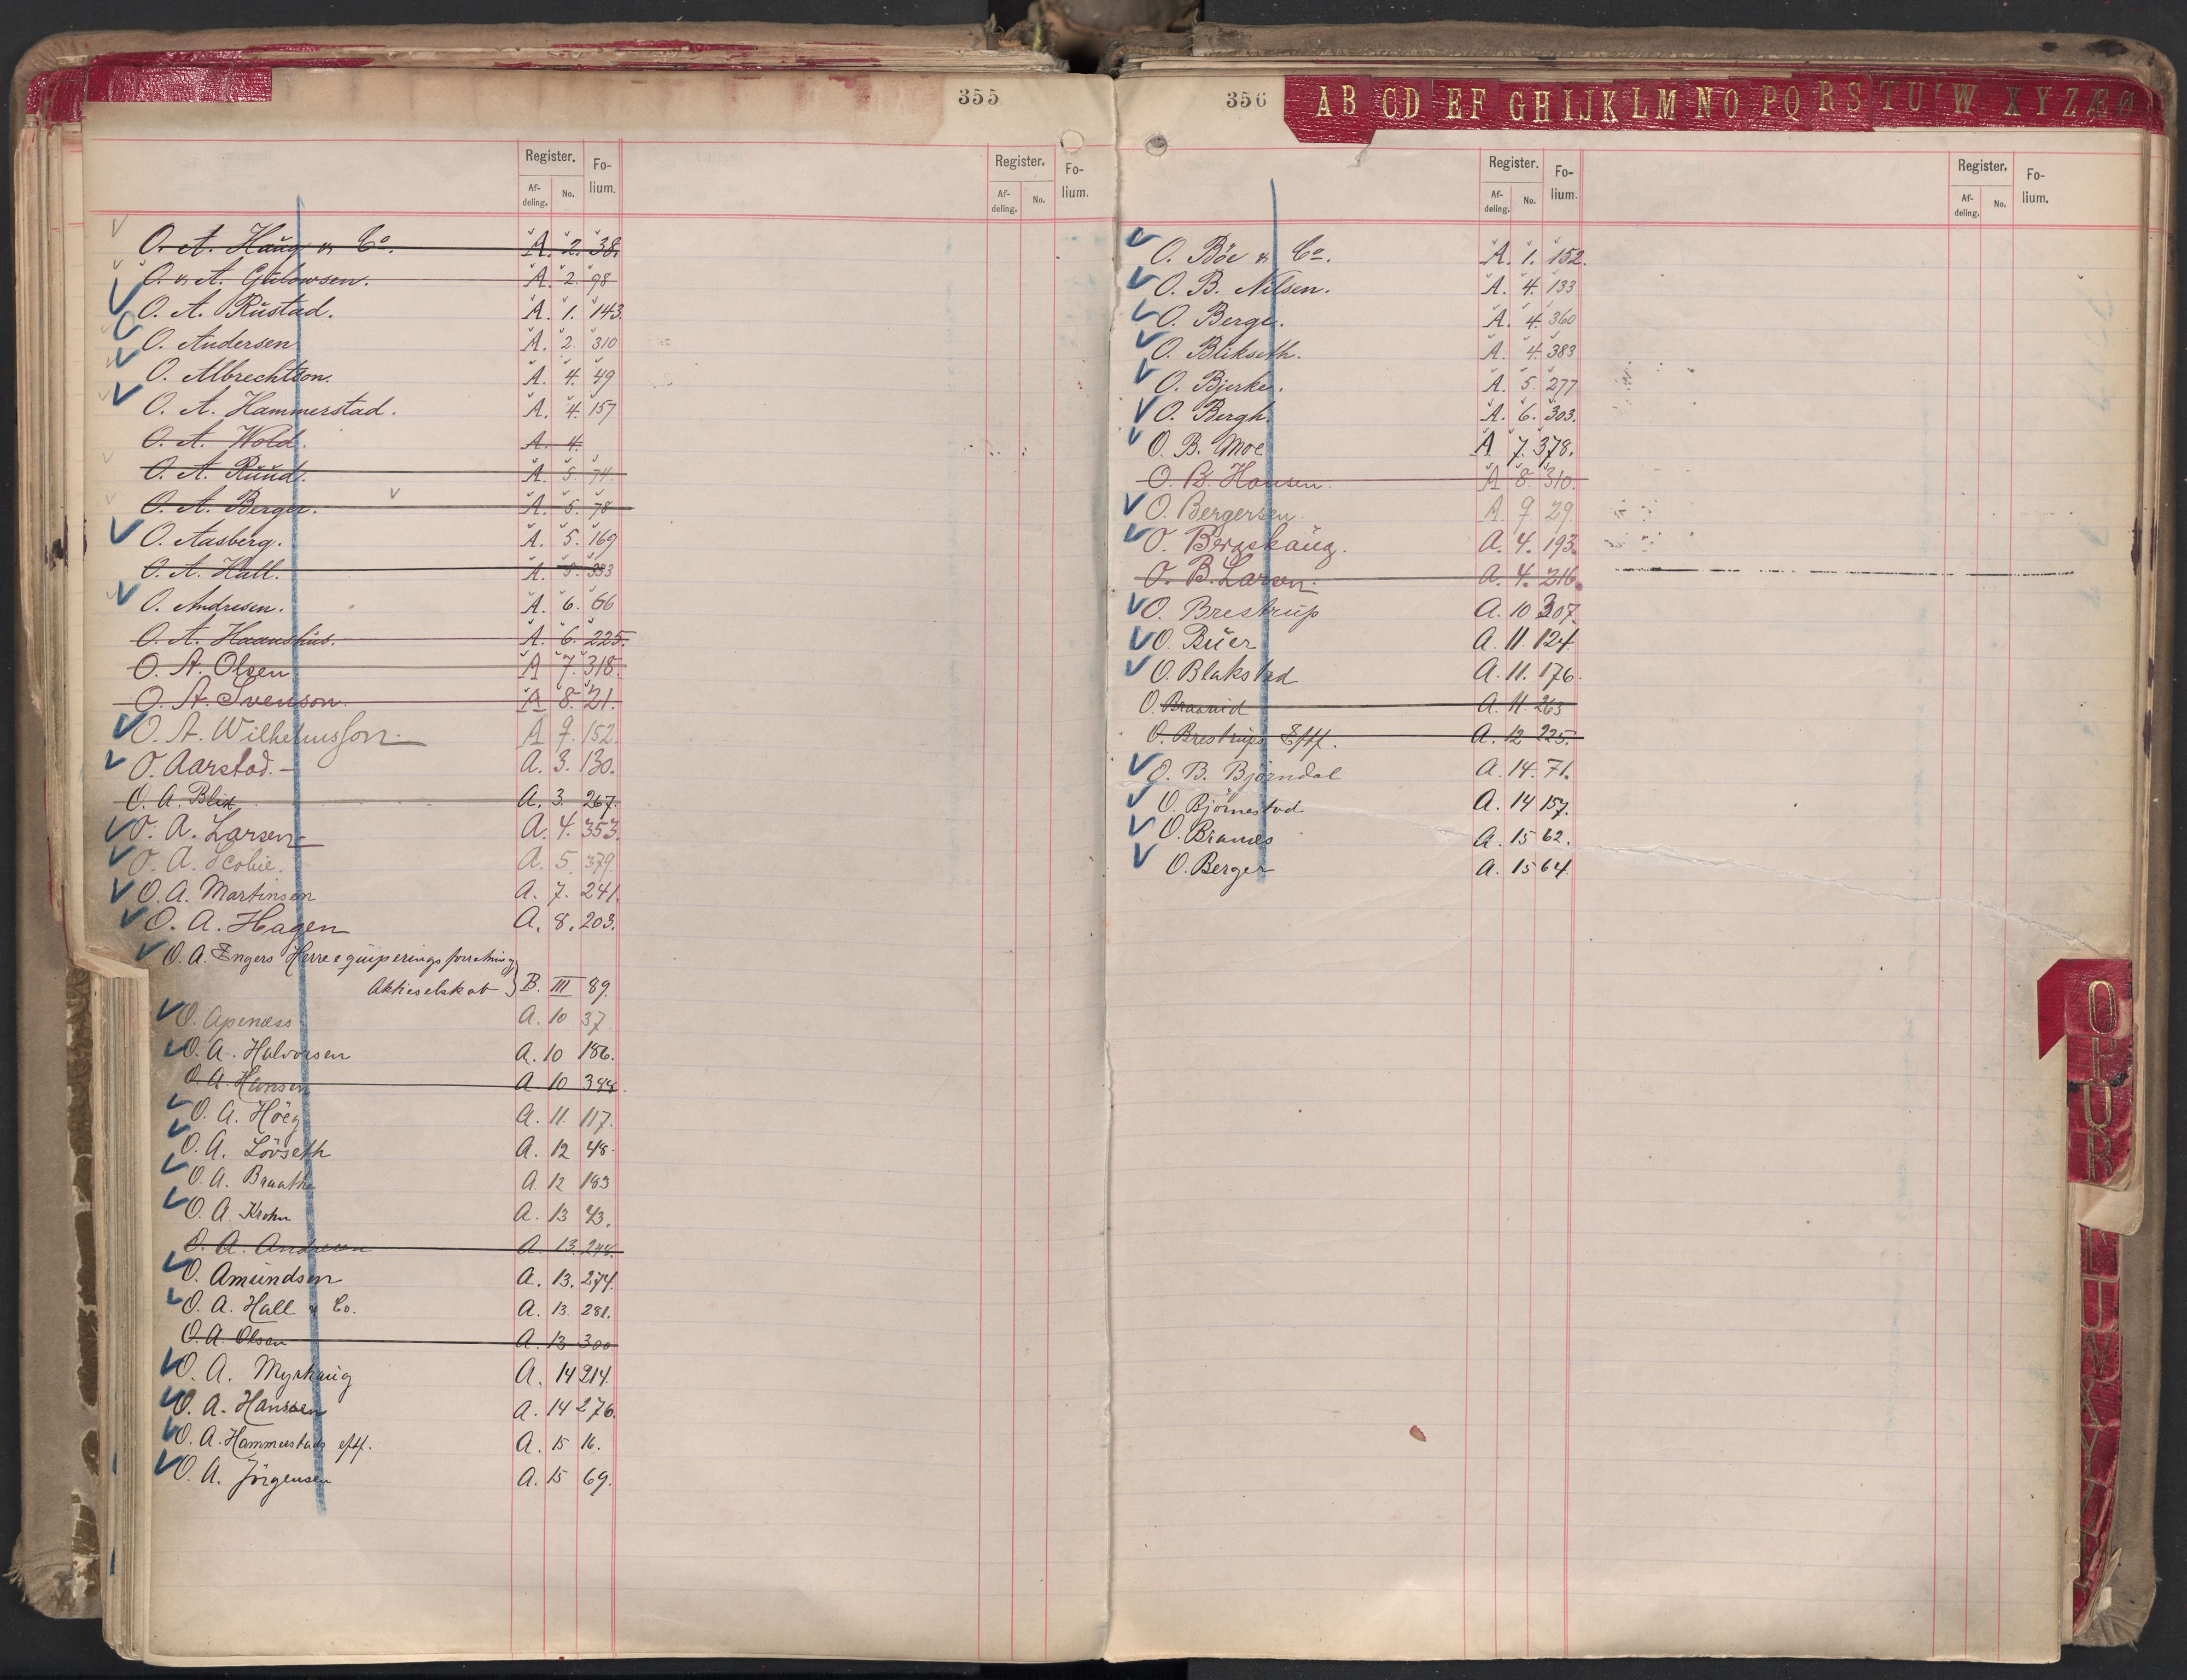 355
Register. Fo-
lium.
Af-
deling. No.
Register. Fo-
lium.
Af-
deling. No.
O. A. Haug & Co. A. 2. 38.
O. & A. Gulowsen. A. 2. 98
O. A. Rustad. A. 1. 143.
O. Andersen A. 2. 310
O. Albrechtson. A. 4. 49
O. A. Hammerstad. A. 4. 157
O. A. Wold. A. 4.
O. A. Ruud. A. 5. 74.
O. A. Berger. A. 5. 78
O. Aasberg. A. 5. 169
O. A. Hall. A. 5. 333
O. Andresen. A. 6. 66
O. A. Haanshus. A. 6. 225.
O. A. Olsen A 7. 318.
O. A. Svenson. A 8. 21.
O. A. Wilhelmsson. A 9. 152.
O. Aarstad. A. 3. 130.
O. A. Blix A. 3. 267.
O. A. Larsen A. 4. 353.
O. A. Scobie. A. 5. 379.
O. A. Martinsen A. 7. 241.
O. A. Hagen A. 8. 203.
O. A. Engers Herreequiperingsforretning
Aktieselskab B. III 89.
O. Apenæss A. 10 37.
O. A. Halvorsen A. 10 186.
O. A. Hansen A. 10 344.
O. A. Höeg A. 11. 117.
O. A. Lövseth A. 12 48.
O. A. Braathe A. 12 183
O. A. Krohn A. 13 43.
O. A. Andresen A. 13. 248.
O. Amundsen A. 13. 274.
O. A. Hall & Co. A. 13. 281.
O. A. Olsen A. 13 300
O. A. Myrhaug A. 14 214.
O. A. Hanssen A. 14 276.
O. A. Hammerstads eftf. A. 15 16.
O. A. Jörgensen A. 15 69.
356
AB CD EF GH IJ KL M NO PQ RS TU V W X Y Z Æ Ø
Register. Fo-
lium.
Af-
deling. No.
Register. Fo-
lium.
Af-
deling. No.
O. Böe & Co. A. 1. 152.
O. B. Nilsen. A. 4. 133
O. Berge. A. 4. 360
O. Blikseth. A. 4. 383
O. Bjerke. A. 5. 277
O. Bergh. A. 6. 303.
O. B. Moe A 7. 378.
O. B. Hansen. A 8. 310.
O. Bergersen. A. 9 29.
O. Bergskaug. A. 4. 193.
O. B. Larsen. A. 4. 216.
O. Brestrup A. 10 307.
O. Buer A. 11. 124.
O. Blakstad A. 11. 176.
O. Braarud A. 11. 263
O. Brestrups Eftf. A. 12 225.
O. B. Björndal A. 14. 71.
O. Björnestad A. 14 157.
O. Brandes A. 15 62.
O. Berger A. 15 64.